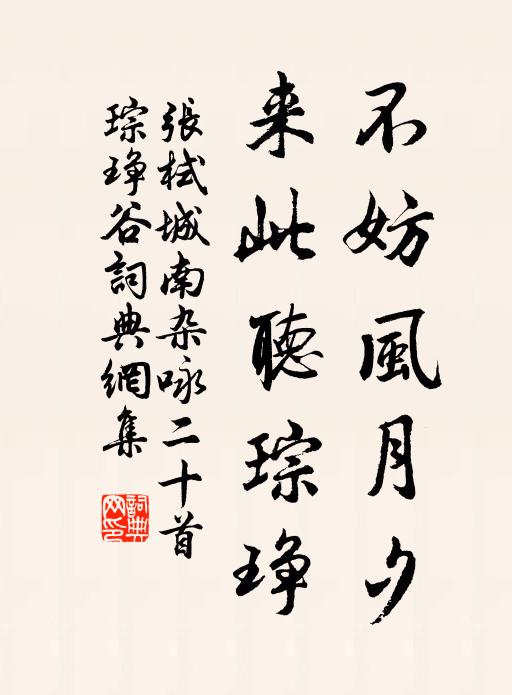 不妨風月夕
来此聽琮琤
張栻城南杂咏二十首
琮琤谷詞典網集
詞典
网印